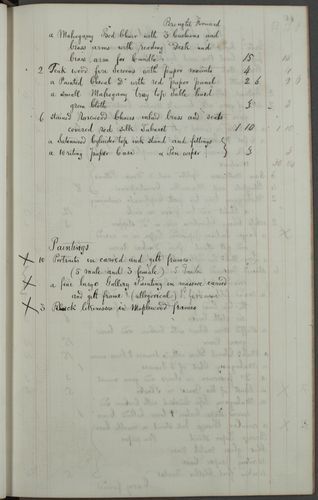 Brought Forward
a Mahogany Bed Chair with 3 Cushions and
brass arms with reading Desk and
brass arm for Candle 15 15
2 Teak wood fire Screens with paper mounts 4
a Painted Cheval Do with red paper panel 2 6 2 6
a small Mahogany tray top Table lined
green Cloth 5
6 stained Rosewood Chairs inlaid brass and seats
covered Red silk Tabaret 1 10 1 10
a Satinwood Cylinder top ink stand and fittings
a Writing paper Case a Pen wiper 5
Paintings
x 10 Portraits in carved and gilt frames
(5 male and 3 female)
x a fine large Gallery Painting in massive carved
and gilt frame (allegorical)
x 3 Black Likenesses in Maplewood frames